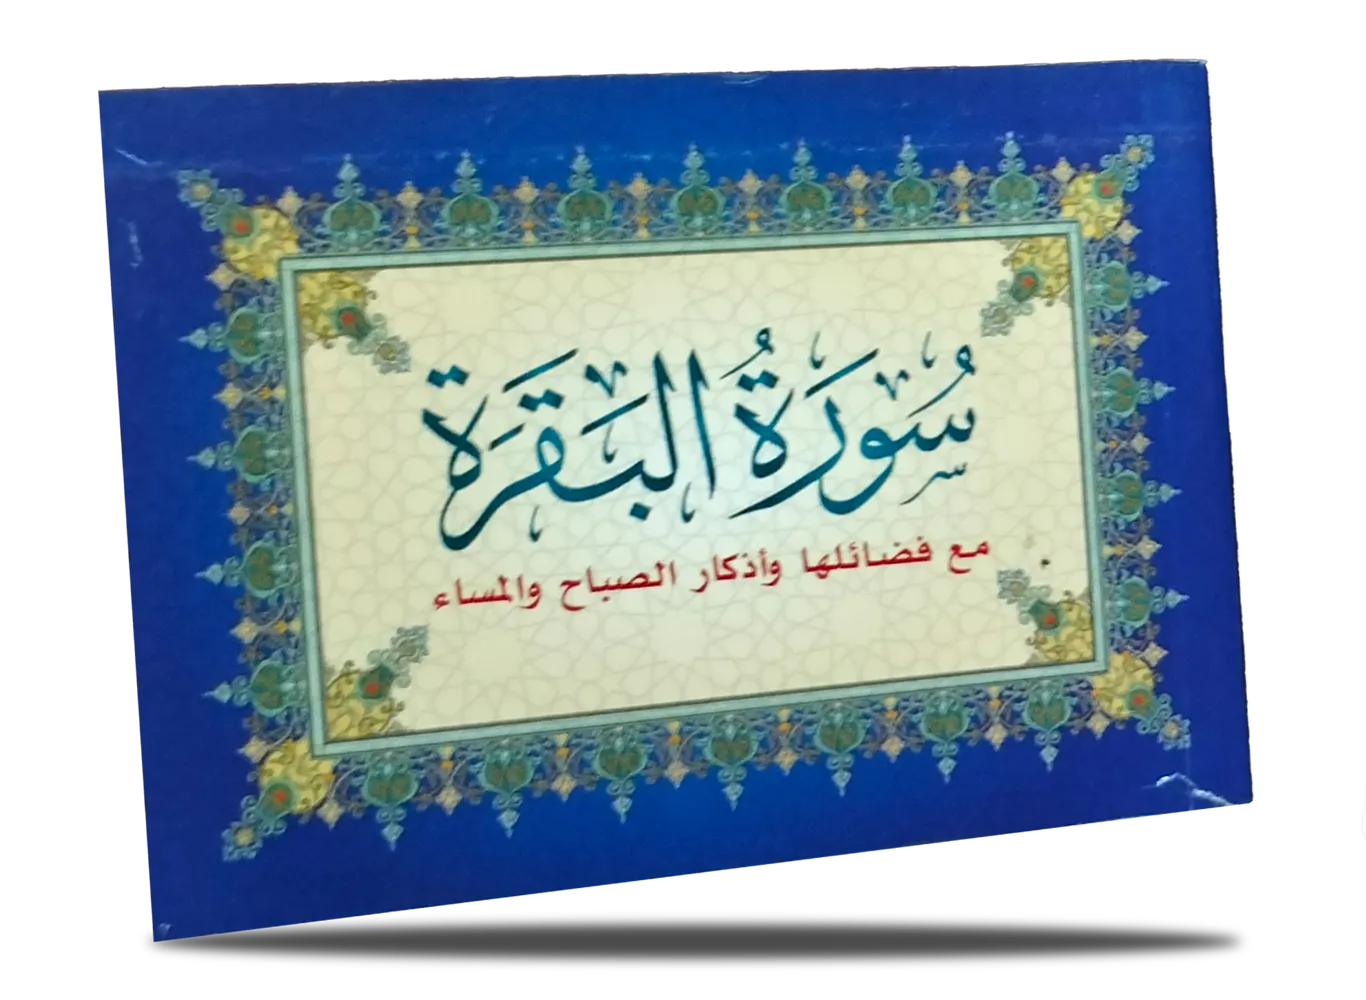 سُورَةُ البَقَرَة
مع فضائلها وأذكار الصباح والمساء